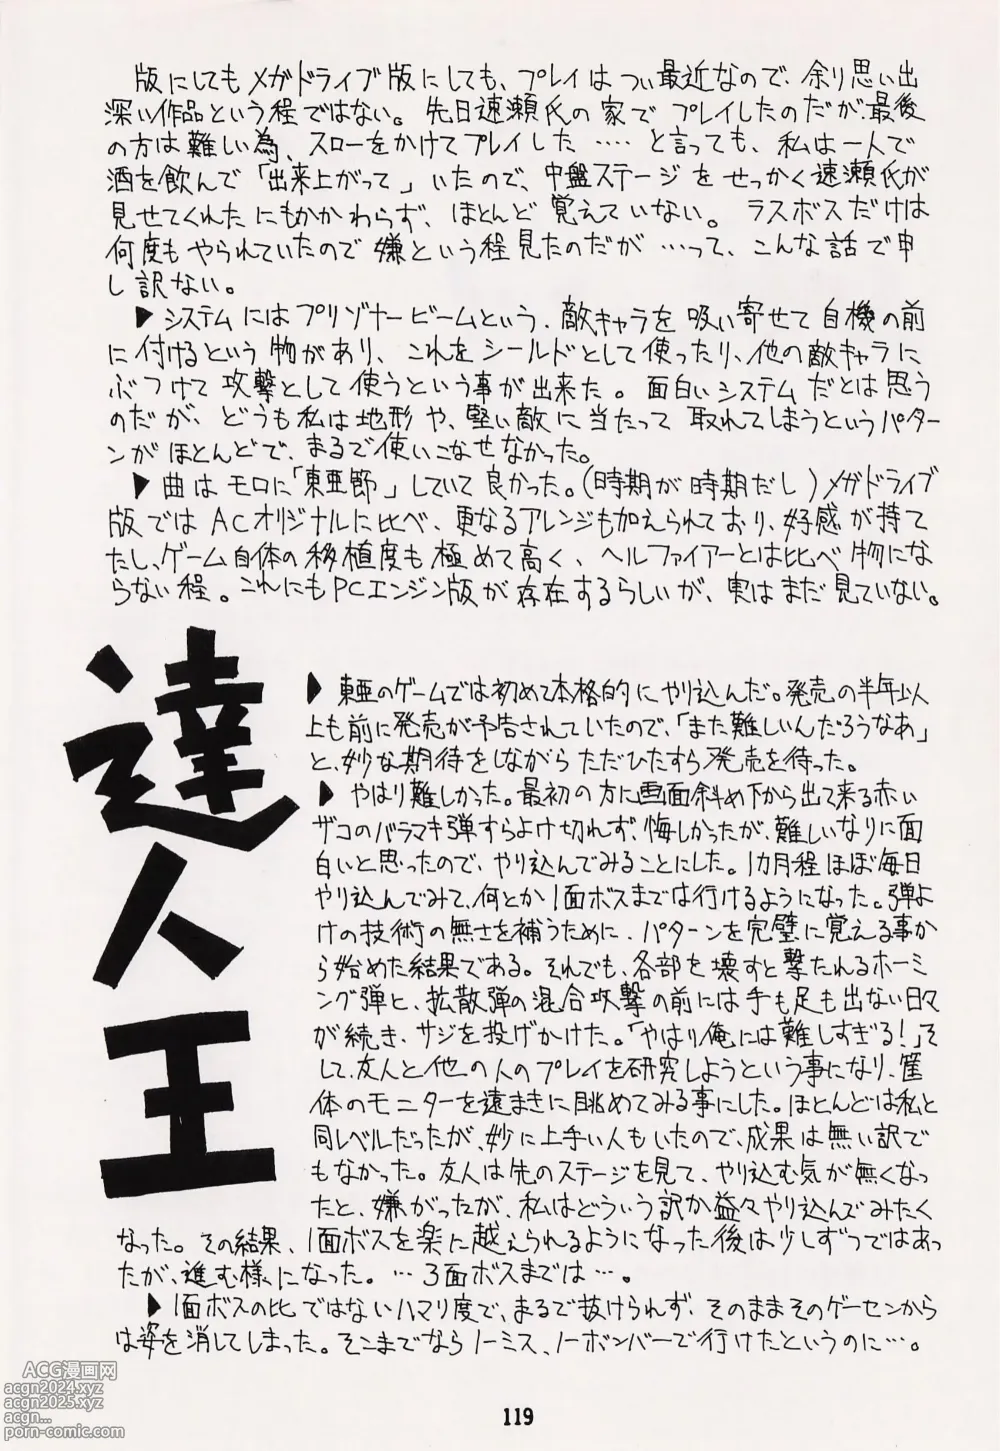 版にしてもメガドライブ版にしても、プレイはつい最近なので、余り思い出
深い作品という程ではない。先日速瀬氏の家でプレイしたのだが、最後
の方は難しい為、スローをかけてプレイした‥‥と言っても、私は一人で
酒を飲んで「出来上がって」いたので、中盤ステージをせっかく速瀬氏が
見せてくれたにもかかわらず、ほとんど覚えていない。ラスボスだけは
何度もやられていたので嫌という程見たのだが…って、こんな話で申
し訳ない。
▶システムにはプリゾナービームという、敵キャラを吸い寄せて自機の前
に付けるという物があり、これをシールドとして使ったり、他の敵キャラに
ぶつけて攻撃として使うという事が出来た。面白いシステムだとは思う
のだが、どうも私は地形や、堅い敵に当たって取れてしまうというパター
ンがほとんどで、まるで使いこなせなかった。
▶曲はモロに「東亜節」していて良かった。(時期が時期だし)メガドライブ
版ではACオリジナルに比べ、更なるアレンジも加えられており、好感が持て
たし、ゲーム自体の移植度も極めて高く、ヘルファイアーとは比べ物にな
らない程。これにもPCエンジン版が存在するらしいが、実はまだ見ていない。
達人王
▶東亜のゲームでは初めて本格的にやり込んだ。発売の半年以
上も前に発売が予告されていたので、「また難しいんだろうなあ」
と、妙な期待をしながらただひたすら発売を待った。
▶やはり難しかった。最初の方に画面斜め下から出て来る赤い
ザコのバラマキ弾すらよけ切れず、悔しかったが、難しいなりに面
白いと思ったので、やり込んでみることにした。1カ月程ほぼ毎日
やり込んでみて、何とか1面ボスまでは行けるようになった。弾よ
けの技術の無さを補うために、パターンを完璧に覚える事か
ら始めた結果である。それでも、各部を壊すと撃たれるホーミ
ング弾と、拡散弾の混合攻撃の前には手も足も出ない日々
が続き、サジを投げかけた。「やはり俺には難しすぎる!」そ
して、友人と他の人のプレイを研究しようという事になり、筐
体のモニターを遠まきに眺めてみる事にした。ほとんどは私と
同レベルだったが、妙に上手い人もいたので、成果は無い訳で
もなかった。友人は先のステージを見て、やり込む気が無くなっ
たと、嫌がったが、私はどういう訳か益々やり込んでみたく
なった。その結果、1面ボスを楽に越えられるようになった後は少しずつではあっ
たが、進む様になった。…3面ボスまでは…。
▶1面ボスの比ではないハマリ度で、まるで抜けられず、そのままそのゲーセンから
は姿を消してしまった。そこまでならノーミス、ノーボンバーで行けたというのに…。
ACG漫画网
acgn2024.xyz
acgn2025.xyz
acgn...
porn-comic.com
119